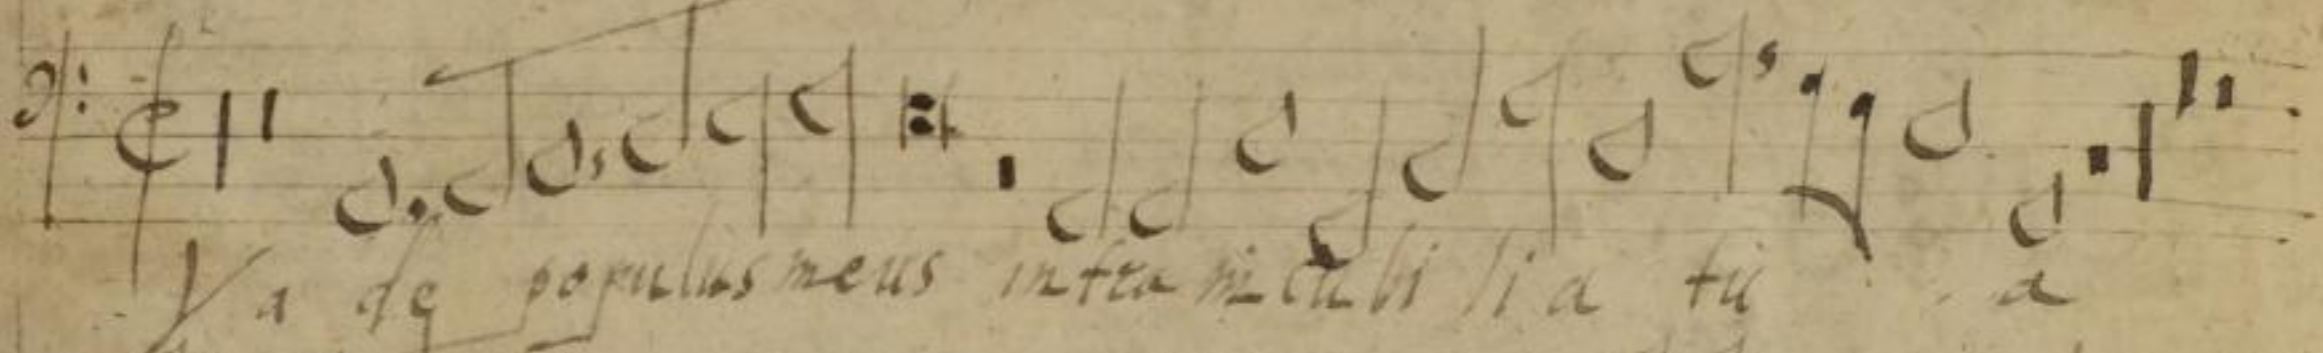 Vade populus meus intra in cubilia tua